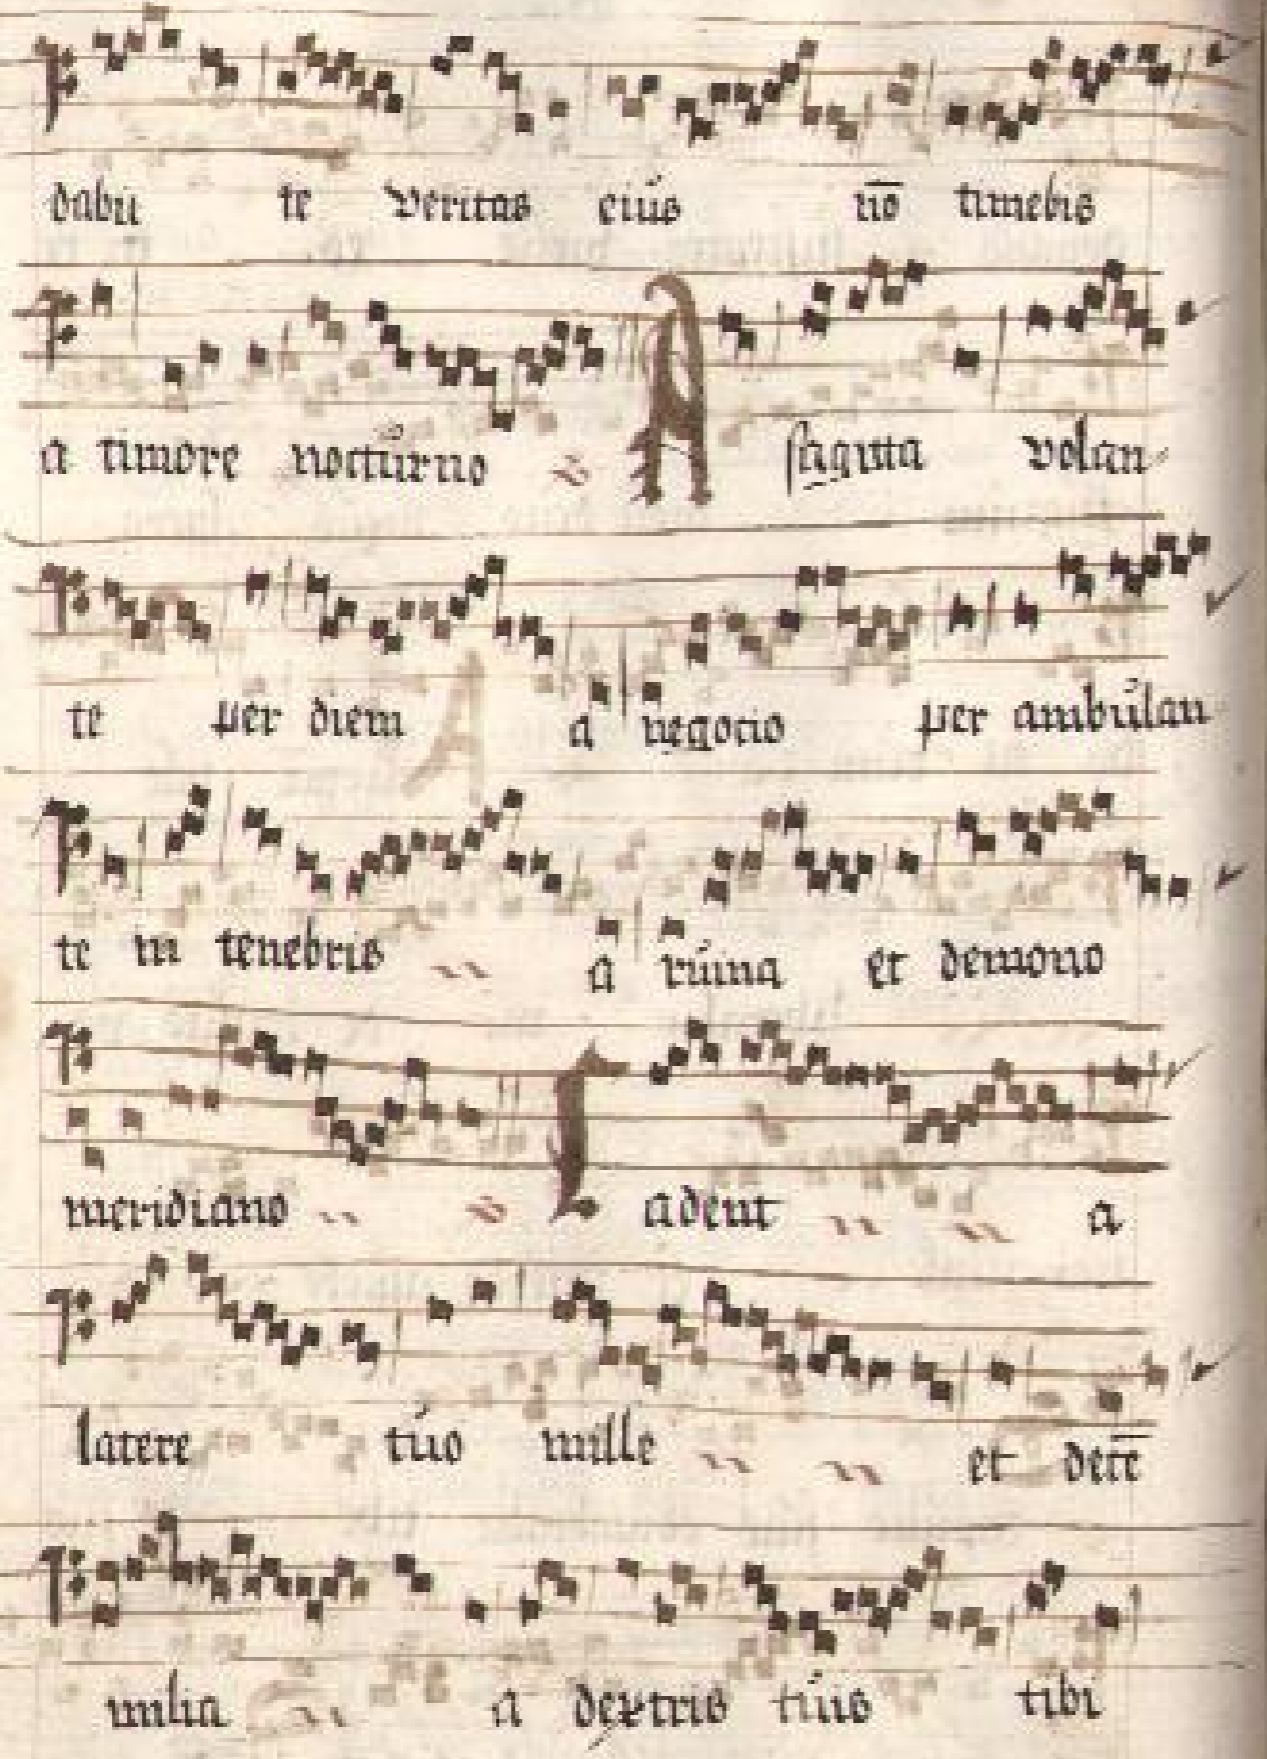 dabit te veritas eius nō timebis
a timore nocturno A sagitta volan
te per diem a negocio per ambulan
te in tenebris a ruina et demonio
meridiano Cadent a
latere tuo mille et decē
milia a dextris tuis tibi